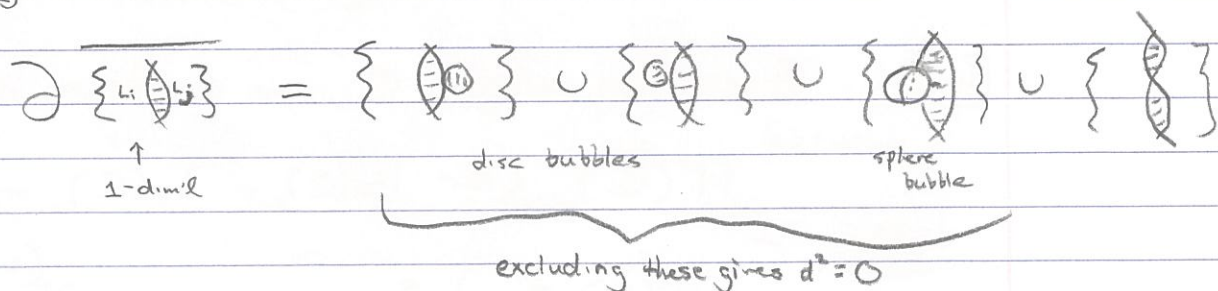 ∂ {Lᵢ Lⱼ} = { } ∪ { } ∪ { } ∪ { }
↑ disc bubbles sphere
1-dim'l bubble
excluding these gives d² = 0